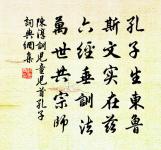 孔子生東魯
斯文實在茲
六經垂訓法
萬世共宗師
陳淳訓兒童八首孔子
詞典網集